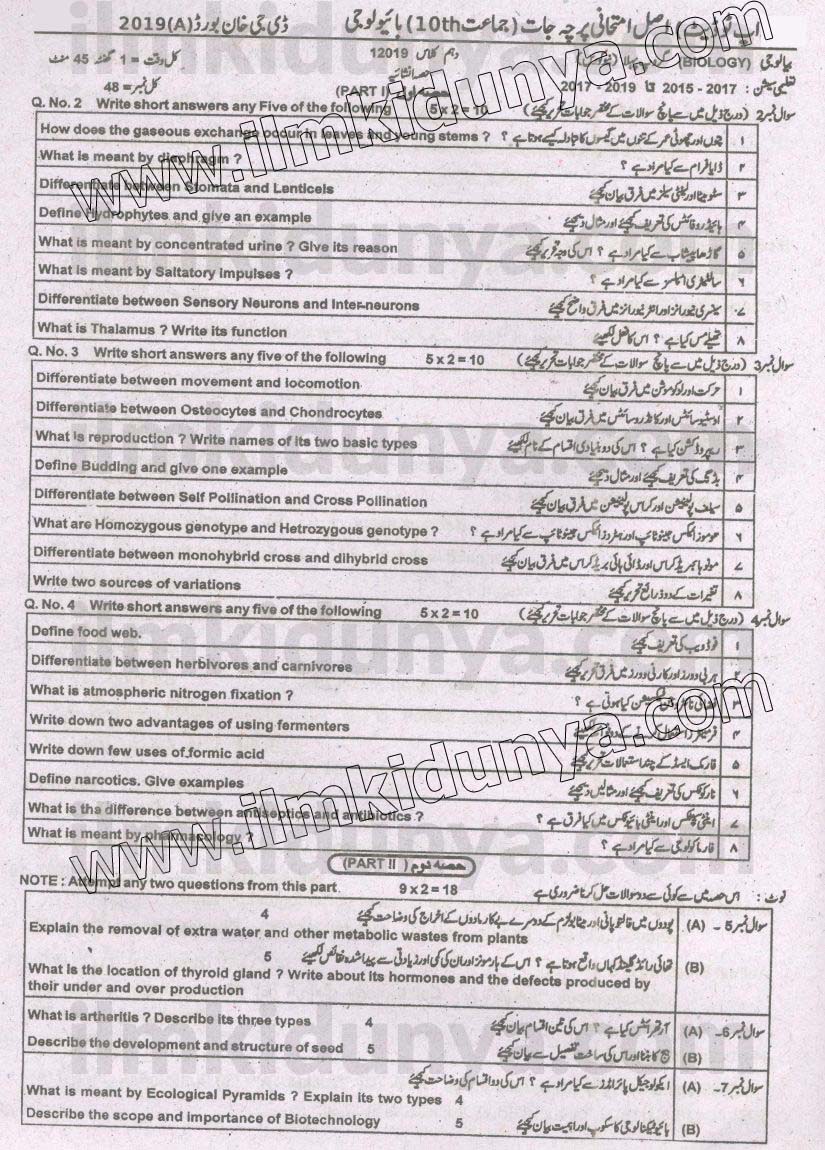 اپ ٹو ڈیٹ اصل امتحانی پرچہ جات (جماعت 10th) بائیولوجی ڈی جی خان بورڈ (A) 2019
بیالوجی (BIOLOGY) دہم کلاس 12019 کل وقت = 1 گھنٹہ 45 منٹ
تعلیمی سیشن : 2015 - 2017 تا 2017 - 2019 حصہ اول (PART I) کل نمبر = 48
Q. No. 2 Write short answers any Five of the following 5 x 2 = 10 سوال نمبر 2 (درج ذیل میں سے پانچ سوالات کے مختصر جوابات تحریر کیجئے)
How does the gaseous exchange occur in leaves and young stems ? پتوں اور چھوٹی عمر کے تنوں میں گیسوں کا تبادلہ کیسے ہوتا ہے ؟ ۱
What is meant by diaphragm ? ڈایا فرام سے کیا مراد ہے ؟ ۲
Differentiate between Stomata and Lenticels سٹومیٹا اور لینٹی سیلز میں فرق بیان کیجئے ۳
Define Hydrophytes and give an example ہائیڈروفائٹس کی تعریف کیجئے اور مثال دیجئے ۴
What is meant by concentrated urine ? Give its reason گاڑھا پیشاب سے کیا مراد ہے ؟ اس کی وجہ تحریر کیجئے ۵
What is meant by Saltatory impulses ? سالٹیٹری امپلسز سے کیا مراد ہے ؟ ۶
Differentiate between Sensory Neurons and Inter-neurons سینسری نیورانز اور انٹر نیورانز میں فرق واضح کیجئے ۷
What is Thalamus ? Write its function تھیلے مس کیا ہے ؟ اس کا فعل لکھیئے ۸
Q. No. 3 Write short answers any five of the following 5 x 2 = 10 سوال نمبر 3 (درج ذیل میں سے پانچ سوالات کے مختصر جوابات تحریر کیجئے)
Differentiate between movement and locomotion حرکت اور لوکوموشن میں فرق بیان کیجئے ۱
Differentiate between Osteocytes and Chondrocytes اوسٹیوسائٹس اور کانڈروسائٹس میں فرق بیان کیجئے ۲
What is reproduction ? Write names of its two basic types ریپروڈکشن کیا ہے ؟ اس کی دو بنیادی اقسام کے نام لکھیئے ۳
Define Budding and give one example بڈنگ کی تعریف کیجئے اور مثال دیجئے ۴
Differentiate between Self Pollination and Cross Pollination سیلف پولینیشن اور کراس پولینیشن میں فرق بیان کیجئے ۵
What are Homozygous genotype and Hetrozygous genotype ? ہوموزائیگس جینوٹائپ اور ہیٹروزائیگس جینوٹائپ سے کیا مراد ہے ؟ ۶
Differentiate between monohybrid cross and dihybrid cross مونوہائبرڈ کراس اور ڈائی ہائی برڈ کراس میں فرق بیان کیجئے ۷
Write two sources of variations تغیرات کے دو ذرائع تحریر کیجئے ۸
Q. No. 4 Write short answers any five of the following 5 x 2 = 10 سوال نمبر 4 (درج ذیل میں سے پانچ سوالات کے مختصر جوابات تحریر کیجئے)
Define food web. فوڈ ویب کی تعریف کیجئے ۱
Differentiate between herbivores and carnivores ہربی وورز اور کارنی وورز میں فرق تحریر کیجئے ۲
What is atmospheric nitrogen fixation ? فکسیشن کیا ہوتی ہے ؟ ۳
Write down two advantages of using fermenters ۴
Write down few uses of formic acid فارمک ایسڈ کے چند استعمالات تحریر کیجئے ۵
Define narcotics. Give examples نارکوٹکس کی تعریف کیجئے اور مثالیں دیجئے ۶
What is tha difference between antiseptics and antibiotics ? اینٹی سیپٹکس اور اینٹی بائیوٹکس میں کیا فرق ہے ؟ ۷
What is meant by pharmacology ? فارماکولوجی سے کیا مراد ہے ؟ ۸
حصہ دوم (PART II)
NOTE : Attempt any two questions from this part. 9 x 2 = 18 نوٹ : اس حصہ میں سے کوئی سے دو سوالات حل کرنا ضروری ہے
سوال نمبر 5 - (A) پودوں میں فالتو پانی اور میٹابولزم کے دوسرے بے کار مادوں کے اخراج کی وضاحت کیجئے 4
Explain the removal of extra water and other metabolic wastes from plants
(B) تھائی رائڈ گلینڈ کہاں واقع ہوتا ہے ؟ اس کے ہارمونز اور ان کی کمی اور زیادتی سے پیدا شدہ نقائص لکھیئے 5
What is the location of thyroid gland ? Write about its hormones and the defects produced by
their under and over production
What is artheritis ? Describe its three types 4 آرتھرائٹس کیا ہے ؟ اس کی تین اقسام بیان کیجئے (A) سوال نمبر 6-
Describe the development and structure of seed 5 بیج کا بننا اور اس کی ساخت تفصیل سے بیان کیجئے (B)
سوال نمبر 7- (A) ایکولوجیکل پائرامڈز سے کیا مراد ہے ؟ اس کی دو اقسام کی وضاحت کیجئے
What is meant by Ecological Pyramids ? Explain its two types 4
Describe the scope and importance of Biotechnology 5 بائیوٹیکنالوجی کا سکوپ اور اہمیت بیان کیجئے (B)
www.ilmkidunya.com
www.ilmkidunya.com
ilmkidunya.com
ilmkidunya.com
ilmkidunya.com
ilmkidunya.com
ilmkidunya.com
ilmkidunya.com